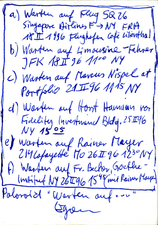 a) Warten auf Flug SQ 26
Singapore Airlines NY FRA
18 II 1996 Flughafen Café
b) Warten auf Limousine-Fahrer
JFK 18 II 96 11 00 NY
c) Warten auf Marcus Nispel at
Portfolio 21 II 96 11 15 NY
d) Warten auf Horst Hamann vor
Fidelity Investment Bldg. II 96
NY 15 05
e) Warten auf Rainer Mayer
214 Lafayette NY
f) Warten auf Fr. Becher, Goethe-
Institut NY 26 II 96 15 45 mit Rainer Mayer
Polaroid "Warten auf..."